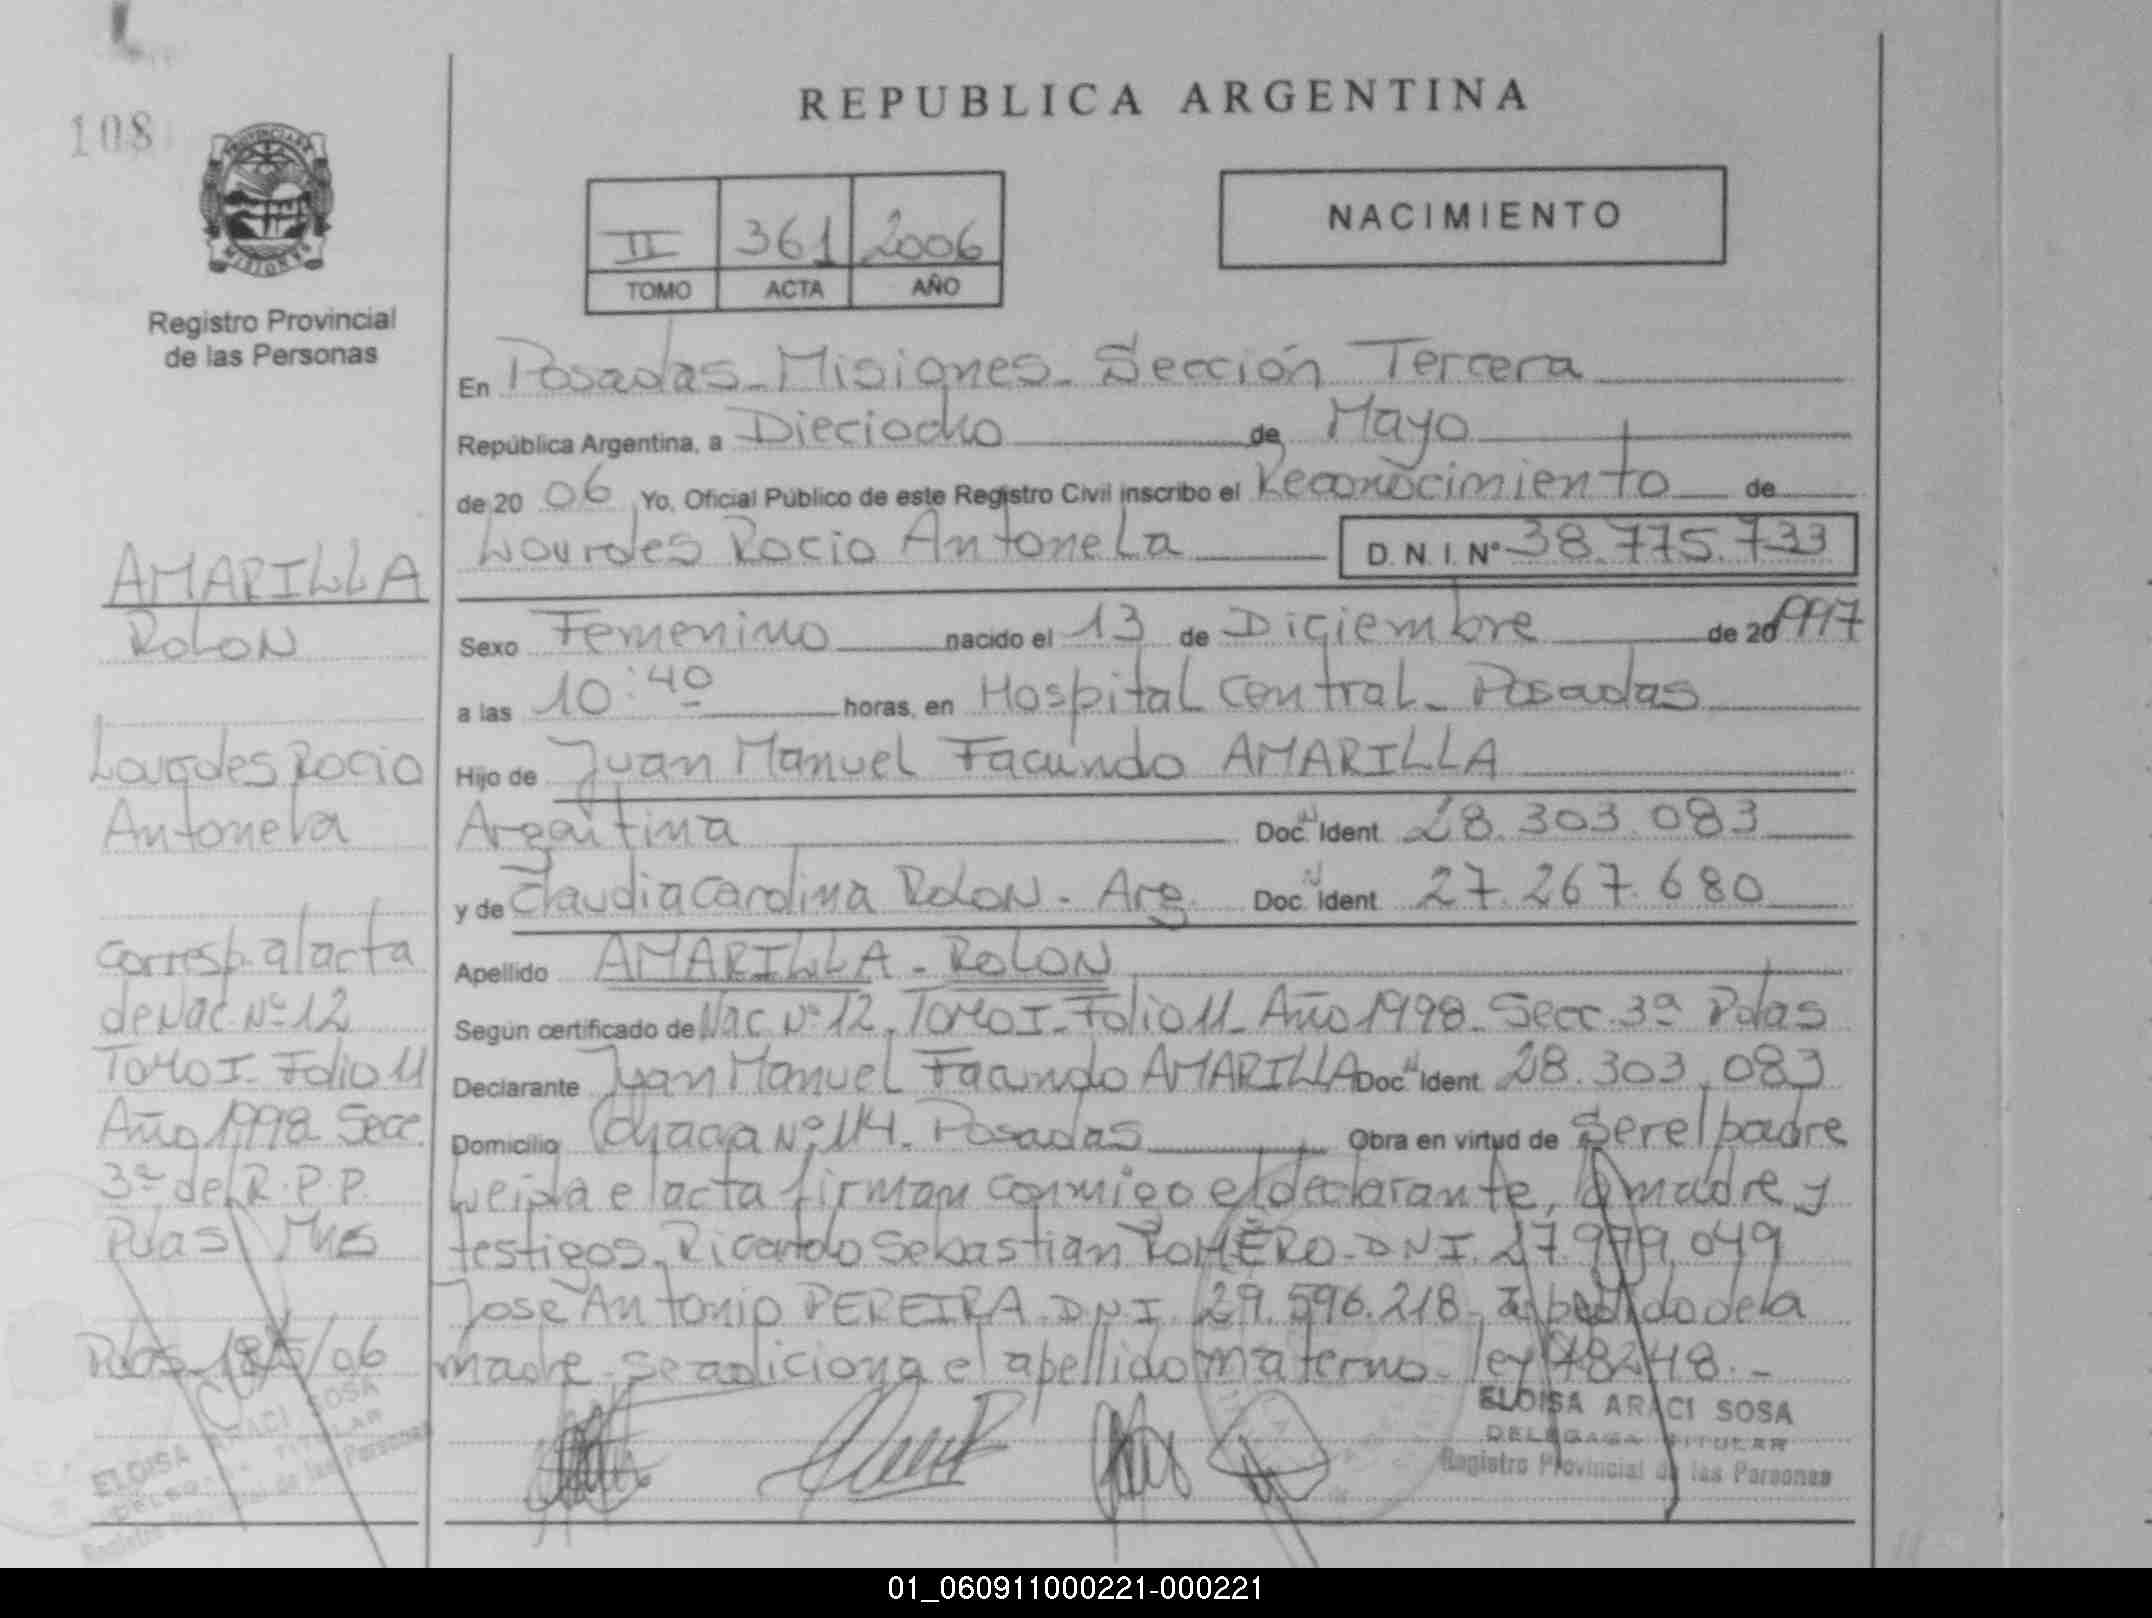 108
REPUBLICA ARGENTINA
PROVINCIA DE
MISIONES
Registro Provincial
de las Personas
II 361 2006
TOMO ACTA AÑO
NACIMIENTO
En Posadas - Misiones - Sección Tercera
República Argentina, a Dieciocho de Mayo
de 20 06 Yo, Oficial Público de este Registro Civil inscribo el Reconocimiento de
Lourdes Rocio Antonela D. N. I. Nº 38.775.733
Sexo Femenino nacido el 13 de Diciembre de 20 1997
a las 10:40 horas, en Hospital Central - Posadas
Hijo de Juan Manuel Facundo AMARILLA
Argentina Doc. N Ident 28.303.083
y de Claudia Carolina ROLON - Arg. Doc. N Ident 27.267.680
Apellido AMARILLA - ROLON
Según certificado de Nac. Nº 12. TOMO I - Folio 11 - Año 1998 - Secc. 3ª Pdas
Declarante Juan Manuel Facundo AMARILLA Doc. N Ident 28.303.083
Domicilio Nº 114. Posadas Obra en virtud de Ser el padre
Leida el acta firman conmigo el declarante, la madre y
testigos. Ricardo Sebastian ROMERO - DNI. 27.979.049
Jose Antonio PEREIRA. DNI. 29.596.218 - A pedido de la
madre se adiciona el apellido materno - ley 18248. -
ELOISA ARACI SOSA
DELEGADA TITULAR
Registro Provincial de las Personas
AMARILLA
ROLON
Lourdes Rocio
Antonela
Corresp. al acta
de Nac. Nº 12
TOMO I - Folio 11
Año 1998 Secc.
3ª del R.P.P.
Pdas Mnes
Pdas 18/5/06
ELOISA ARACI SOSA
DELEGADA TITULAR
Registro Provincial de las Personas
01_060911000221-000221